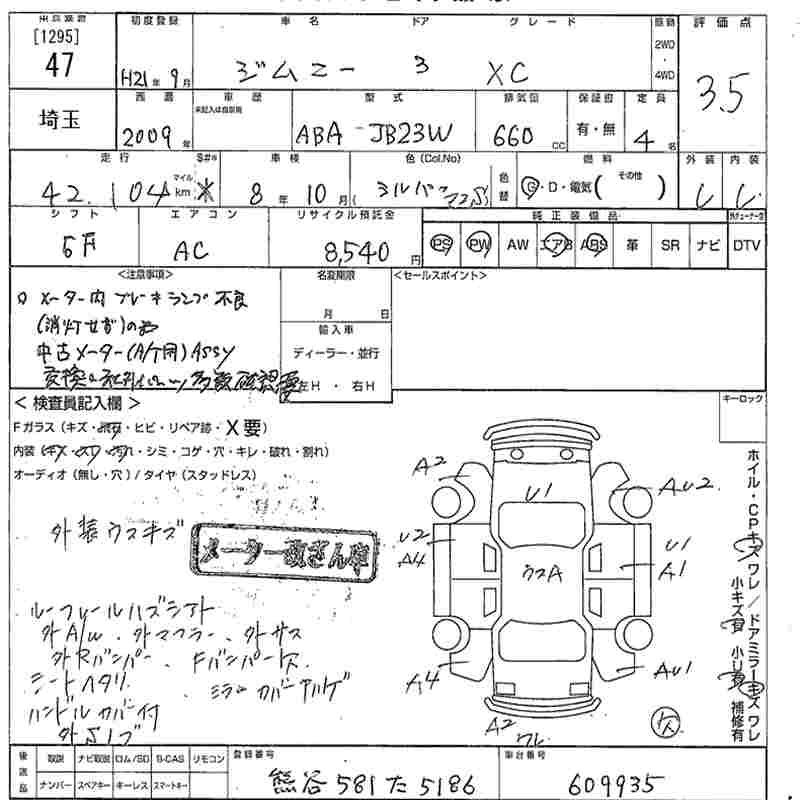 [1295]
47
初度登録 車名 ドア グレード 駆動 評価点
H21年 9月 ジムニー 3 XC 2WD・4WD 3.5
埼玉
西暦 車歴 型式 排気量 保証書 定員
未記入は自家用
2009年 ABA-JB23W 660cc 有・無 4名
走行 $#* 車検 色(Col.No) 色替 燃料 外装 内装
42,104 マイル km * 8年 10月 ( シルバー G・D・電気( その他 )
シフト エアコン リサイクル預託金 純正装備品
5F AC 8,540円 PS PW AW エアB ABS 革 SR ナビ DTV
<注意事項> 名変期限 <セールスポイント>
メーター内 ブレーキランプ不良
(消灯せず)の為
中古メーター(A/T用)ASSY
交換
月 日
輸入車
ディーラー・並行
左H・右H
<検査員記入欄> キーロック
Fガラス(キズ・飛石・ヒビ・リペア跡・X要)
内装(キズ・スレ・汚れ・シミ・コゲ・穴・キレ・破れ・割れ)
オーディオ(無し・穴)/タイヤ(スタッドレス)
外装ウスキズ
メーター改ざん車
ルーフレールハズシアト
外A/W・外マフラー、外サス
外Rバンパー、Fバンパー欠
シートヘタリ、ミラーカバー
ハンドルカバー付
外Sノブ
A2 U1 AU2
U2 A4 ウスA U1 A1
A4 AU1
A2 ワレ 欠
ホイル・CPキズ ワレ/ドアミラーキズ ワレ
小キズ有 小U有 補修有
後送品 取説 ナビ取説 ロム/SD B-CAS リモコン 登録番号 車台番号
ナンバー スペアキー キーレス スマートキー 熊谷 581 た 5186 609935